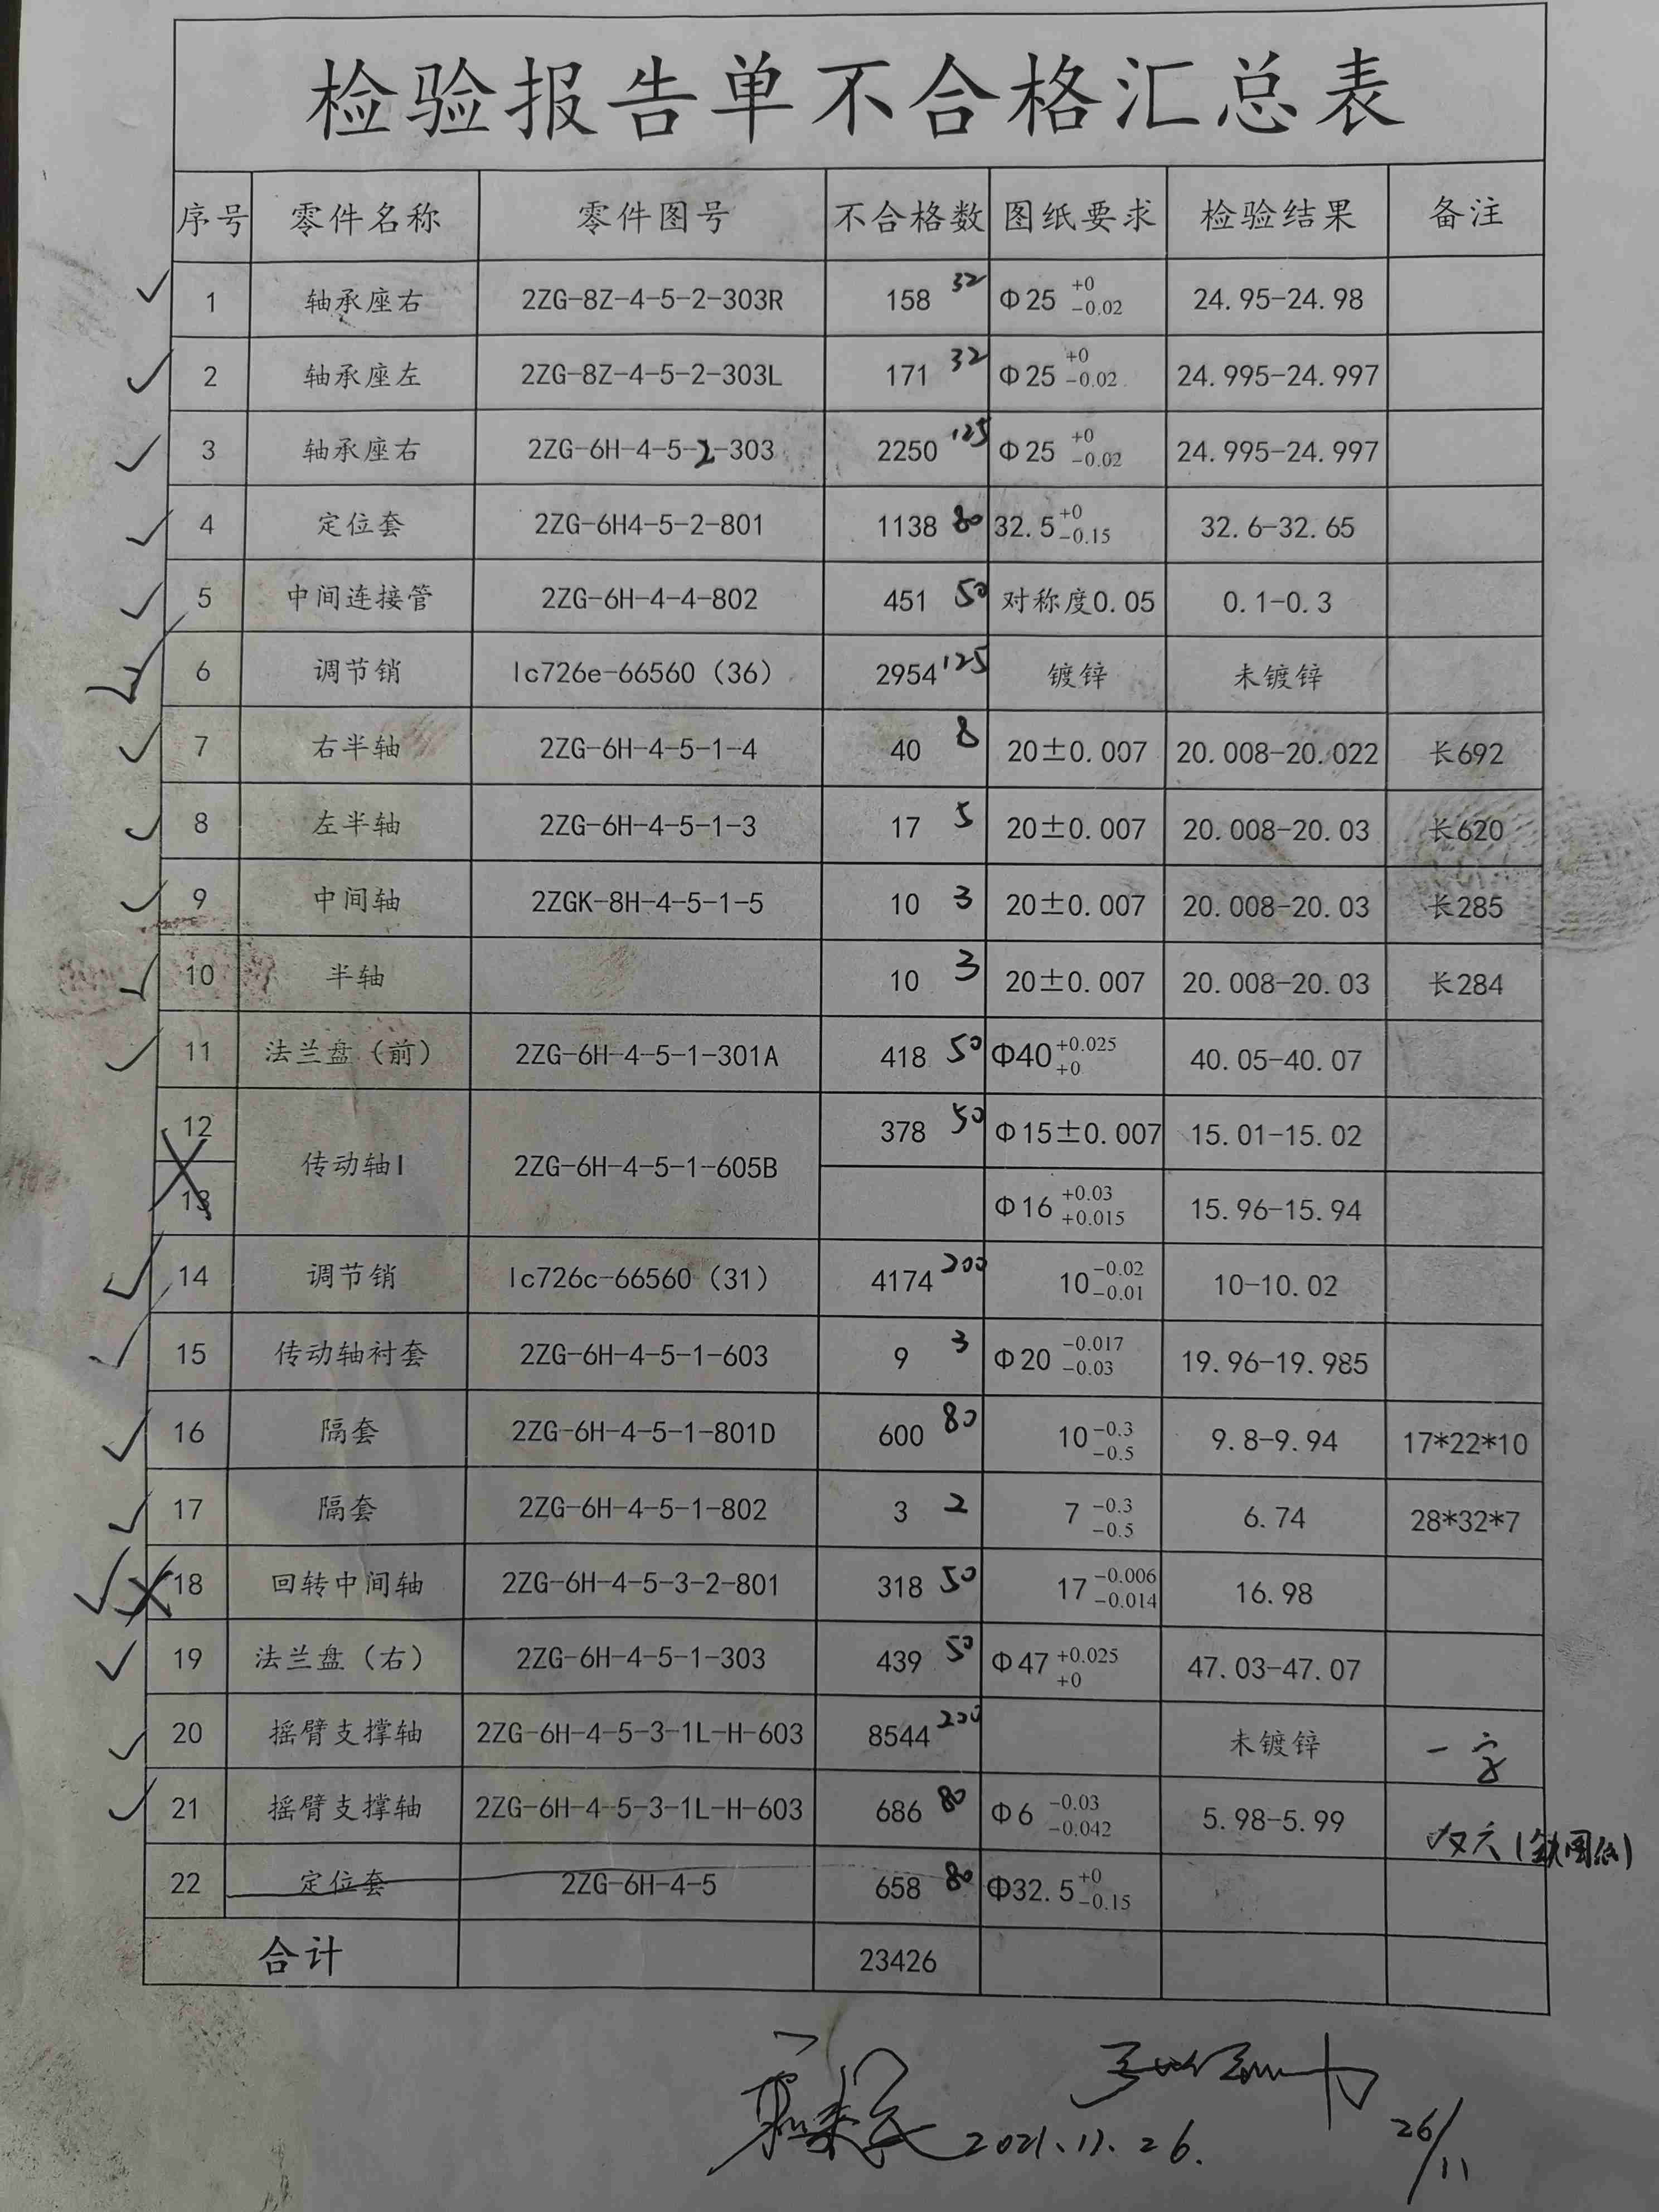 检验报告单不合格汇总表
序号 零件名称 零件图号 不合格数 图纸要求 检验结果 备注
1 轴承座右 2ZG-8Z-4-5-2-303R 158 32 Φ25 +0 -0.02 24.95-24.98
2 轴承座左 2ZG-8Z-4-5-2-303L 171 32 Φ25 +0 -0.02 24.995-24.997
3 轴承座右 2ZG-6H-4-5-2-303 2250 125 Φ25 +0 -0.02 24.995-24.997
4 定位套 2ZG-6H4-5-2-801 1138 80 32.5 +0 -0.15 32.6-32.65
5 中间连接管 2ZG-6H-4-4-802 451 50 对称度0.05 0.1-0.3
6 调节销 lc726e-66560（36） 2954 125 镀锌 未镀锌
7 右半轴 2ZG-6H-4-5-1-4 40 8 20±0.007 20.008-20.022 长692
8 左半轴 2ZG-6H-4-5-1-3 17 5 20±0.007 20.008-20.03 长620
9 中间轴 2ZGK-8H-4-5-1-5 10 3 20±0.007 20.008-20.03 长285
10 半轴 10 3 20±0.007 20.008-20.03 长284
11 法兰盘（前） 2ZG-6H-4-5-1-301A 418 50 Φ40 +0.025 +0 40.05-40.07
12 传动轴I 2ZG-6H-4-5-1-605B 378 50 Φ15±0.007 15.01-15.02
13 Φ16 +0.03 +0.015 15.96-15.94
14 调节销 lc726c-66560（31） 4174 200 10 -0.02 -0.01 10-10.02
15 传动轴衬套 2ZG-6H-4-5-1-603 9 3 Φ20 -0.017 -0.03 19.96-19.985
16 隔套 2ZG-6H-4-5-1-801D 600 80 10 -0.3 -0.5 9.8-9.94 17*22*10
17 隔套 2ZG-6H-4-5-1-802 3 2 7 -0.3 -0.5 6.74 28*32*7
18 回转中间轴 2ZG-6H-4-5-3-2-801 318 50 17 -0.006 -0.014 16.98
19 法兰盘（右） 2ZG-6H-4-5-1-303 439 50 Φ47 +0.025 +0 47.03-47.07
20 摇臂支撑轴 2ZG-6H-4-5-3-1L-H-603 8544 200 未镀锌 一字
21 摇臂支撑轴 2ZG-6H-4-5-3-1L-H-603 686 80 Φ6 -0.03 -0.042 5.98-5.99
22 定位套 2ZG-6H-4-5 658 80 Φ32.5 +0 -0.15
合计 23426
2021.11.26.
26/11